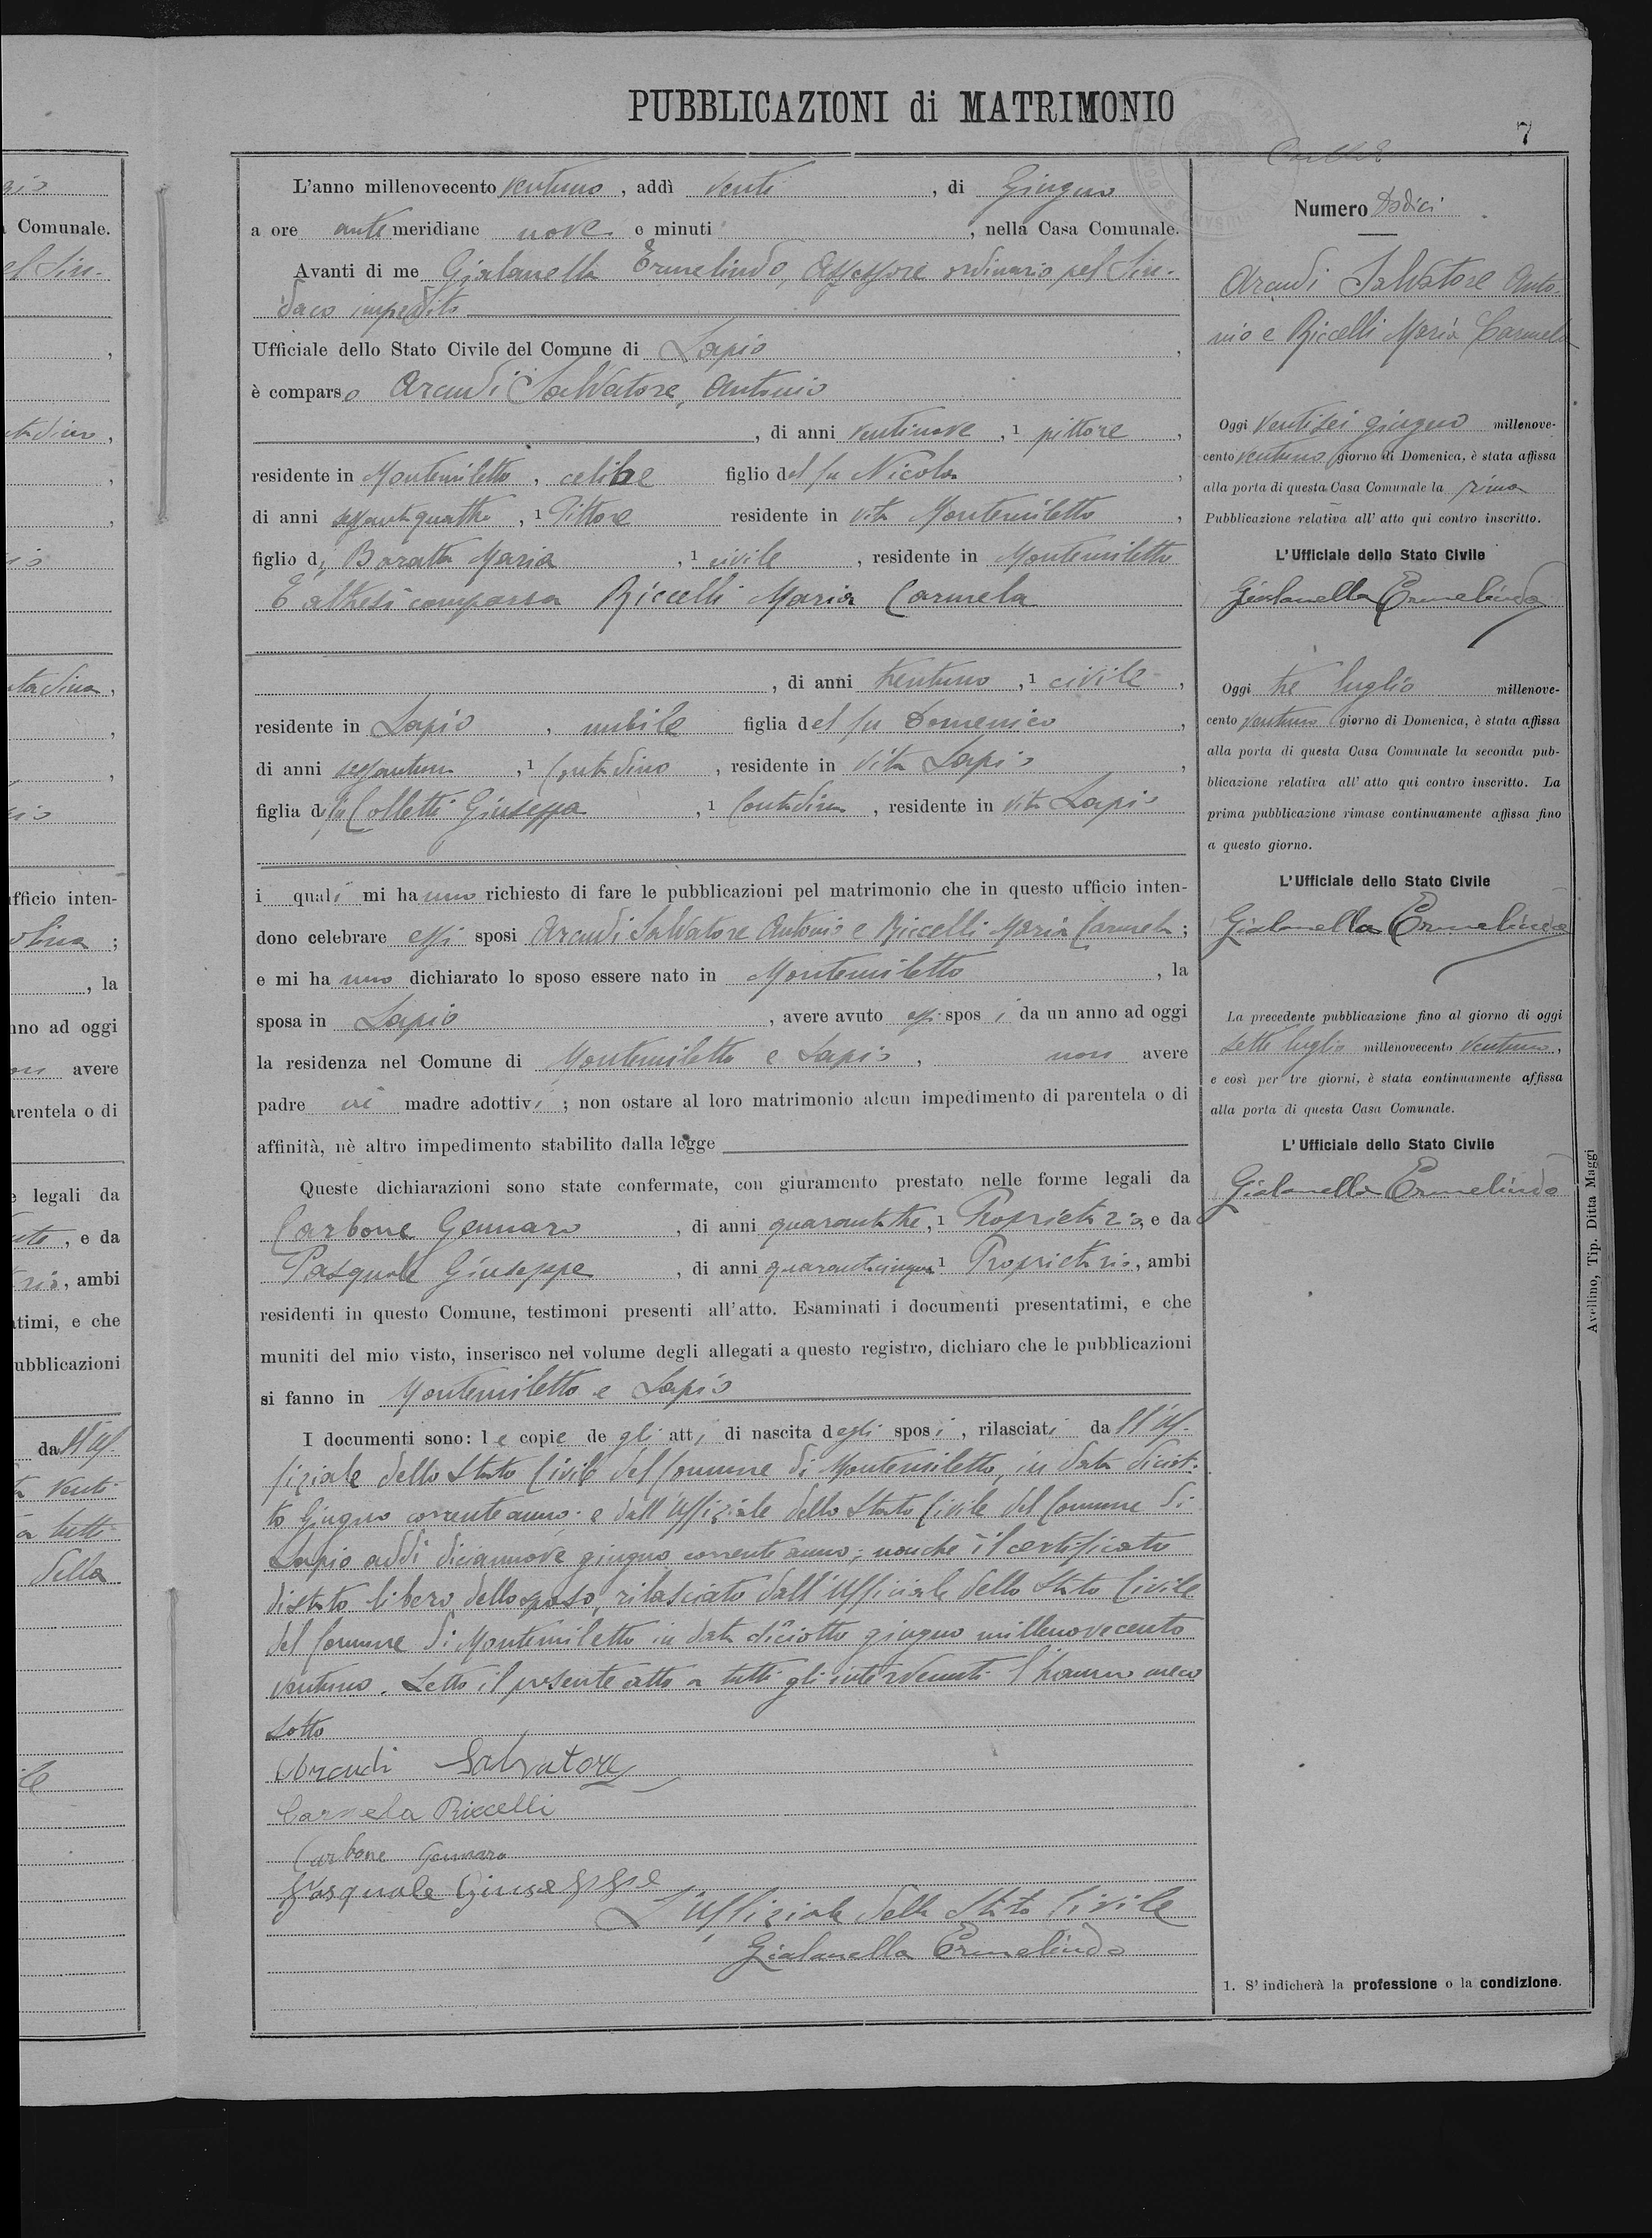 PUBBLICAZIONI di MATRIMONIO
7
L'anno millenovecento ventuno, addì venti, di Giugno
a ore antemeridiane nove e minuti, nella Casa Comunale.
Avanti di me Gialanella Ermelindo, Assessore ordinario pel Sin-
daco impedito
Ufficiale dello Stato Civile del Comune di Lapio,
è comparso Arcudi Salvatore, Antonio
, di anni ventinove, 1 pittore,
residente in Montemiletto, celibe figlio del fu Nicola,
di anni sessantaquattro, 1 Pittore residente in vita Montemiletto,
figlio di Baratta Maria, 1 civile, residente in Montemiletto
È altresì comparsa Riccelli Maria Carmela
, di anni trentuno, 1 civile,
residente in Lapio, nubile figlia del fu Domenico,
di anni sessantuno, 1 Contadino, residente in vita Lapio,
figlia di fu Colletti Giuseppa, 1 Contadina, residente in vita Lapio
i quali mi hanno richiesto di fare le pubblicazioni pel matrimonio che in questo ufficio inten-
dono celebrare essi sposi Arcudi Salvatore Antonio e Riccelli Maria Carmela;
e mi hanno dichiarato lo sposo essere nato in Montemiletto, la
sposa in Lapio, avere avuto essi sposi da un anno ad oggi
la residenza nel Comune di Montemiletto e Lapio, non avere
padre nè madre adottivi; non ostare al loro matrimonio alcun impedimento di parentela o di
affinità, nè altro impedimento stabilito dalla legge
Queste dichiarazioni sono state confermate, con giuramento prestato nelle forme legali da
Carbone Gennaro, di anni quarantatre, 1 Proprietario, e da
Pasquale Giuseppe, di anni quarantacinque 1 Proprietario, ambi
residenti in questo Comune, testimoni presenti all'atto. Esaminati i documenti presentatimi, e che
muniti del mio visto, inserisco nel volume degli allegati a questo registro, dichiaro che le pubblicazioni
si fanno in Montemiletto e Lapio
I documenti sono: le copie degli atti di nascita degli sposi, rilasciati dall'Uf-
fiziale dello Stato Civile del Comune di Montemiletto, in data diciot-
to Giugno corrente anno e dall'Uffiziale dello Stato Civile del Comune di
Lapio addì diciannove giugno corrente anno; nonchè il certificato
di stato libero dello sposo, rilasciato dall'Ufficiale dello Stato Civile
del Comune di Montemiletto in data diciotto giugno millenovecento
ventuno. Letto il presente atto a tutti gli intervenuti l'hanno meco
sotto
Arcudi Salvatore
Carmela Riccelli
Carbone Gennaro
Pasquale Giuseppe
L'Uffiziale dello Stato Civile
Gialanella Ermelindo
Numero Dodici
Arcudi Salvatore Anto-
nio e Riccelli Maria Carmela
Oggi ventisei giugno millenove-
cento ventuno giorno di Domenica, è stata affissa
alla porta di questa Casa Comunale la prima
Pubblicazione relativa all' atto qui contro inscritto.
L'Ufficiale dello Stato Civile
Gialanella Ermelindo
Oggi tre luglio millenove-
cento ventuno giorno di Domenica, è stata affissa
alla porta di questa Casa Comunale la seconda pub-
blicazione relativa all' atto qui contro inscritto. La
prima pubblicazione rimase continuamente affissa fino
a questo giorno.
L'Ufficiale dello Stato Civile
Gialanella Ermelindo
La precedente pubblicazione fino al giorno di oggi
sette luglio millenovecento ventuno,
e così per tre giorni, è stata continuamente affissa
alla porta di questa Casa Comunale.
L'Ufficiale dello Stato Civile
Gialanella Ermelindo
1. S' indicherà la professione o la condizione.
Avellino, Tip. Ditta Maggi
Comunale.
el Sin-
tadina,
ufficio inten-
;
, la
nno ad oggi
avere
arentela o di
e legali da
, e da
, ambi
atimi, e che
ubblicazioni
dall'Uf-
venti
a tutti
della